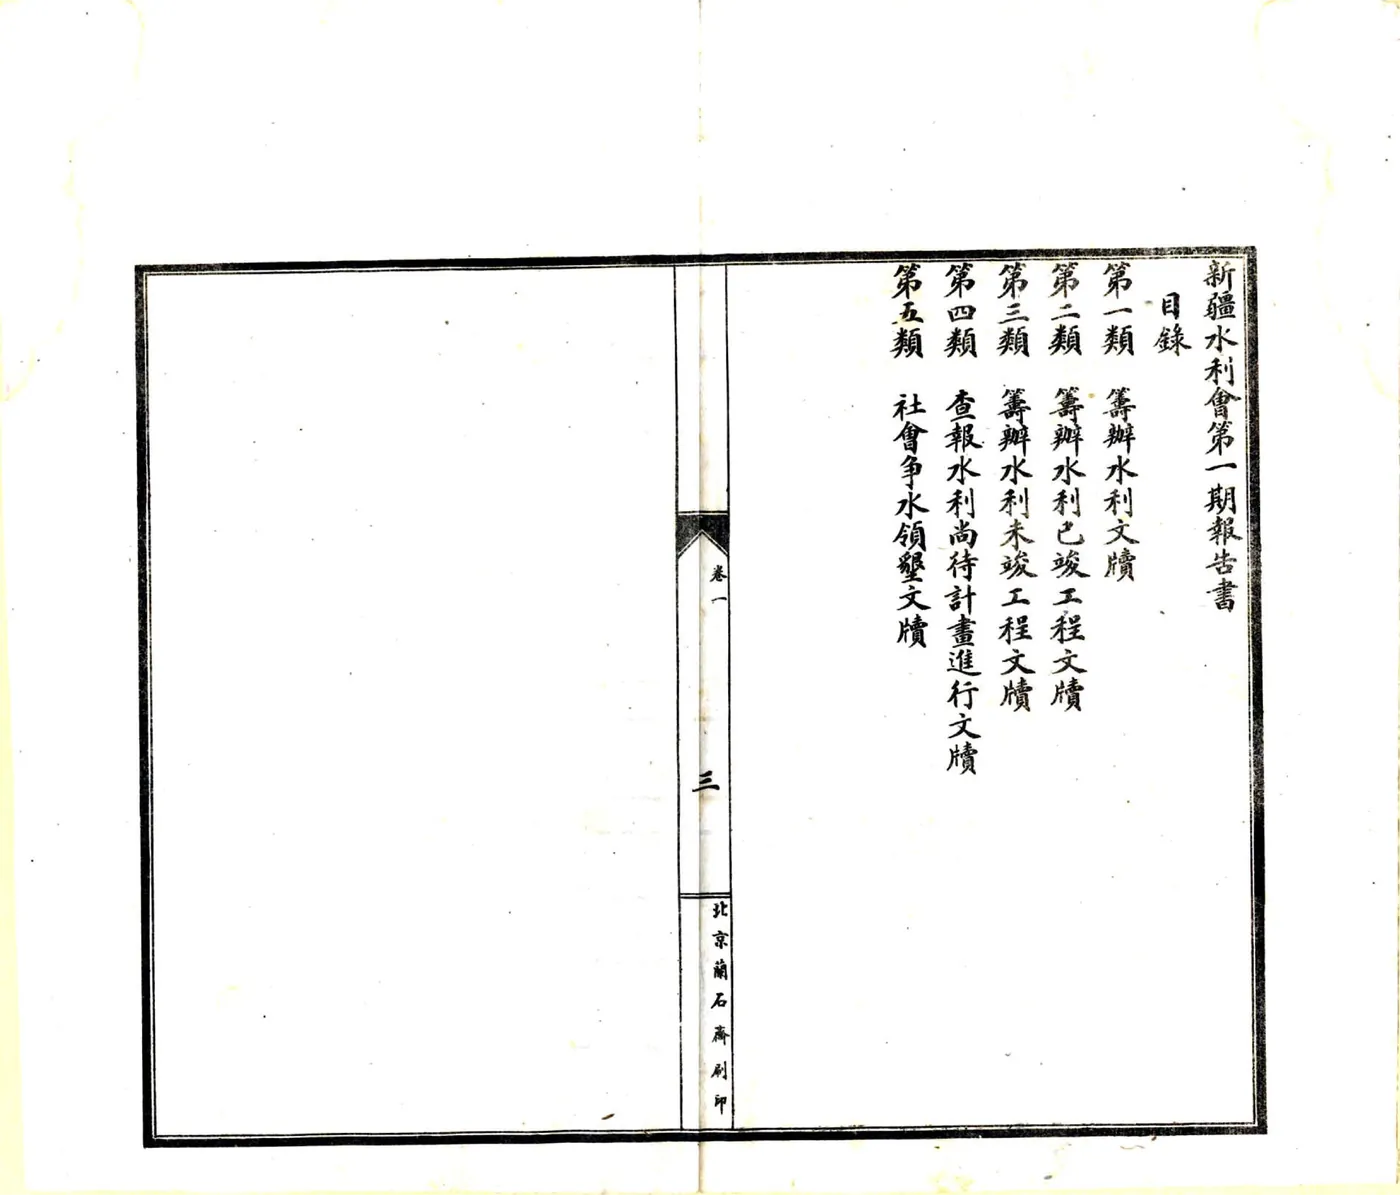 新疆水利會第一期報告書
目錄
第一類 籌辦水利文牘
第二類 籌辦水利已竣工程文牘
第三類 籌辦水利未竣工程文牘
第四類 查報水利尚待計畫進行文牘
第五類 社會争水領墾文牘
卷一
三
北京蘭石齋刷印